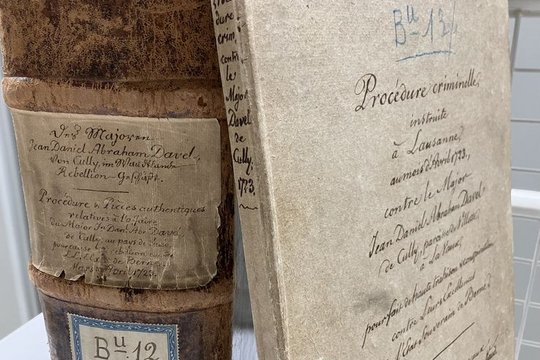 Des Majoren
Jean Daniel Abraham Davel,
von Cully, im Waadtlande
Rebellion-Geschäft.
Procédure & Pièces authentiques
relatives à l'affaire
du Major Jn. Danl. Abr. Davel
de Cully, au pays de Vaud
de Berne
Mars Avril 1723.
Bu. 12
crim.
contre
le
Major
Davel
de
Cully,
1723.
Bu. 13
Procédure criminelle,
instruite
à Lausanne,
au mois d'Avril 1723,
contre le Major
Jean Daniel Abraham Davel,
de Cully, paroisse de Villette,
à La Vaux,
pour fait de haute trahison
contre Leurs Excellences
l'Etat Souverain de Berne.